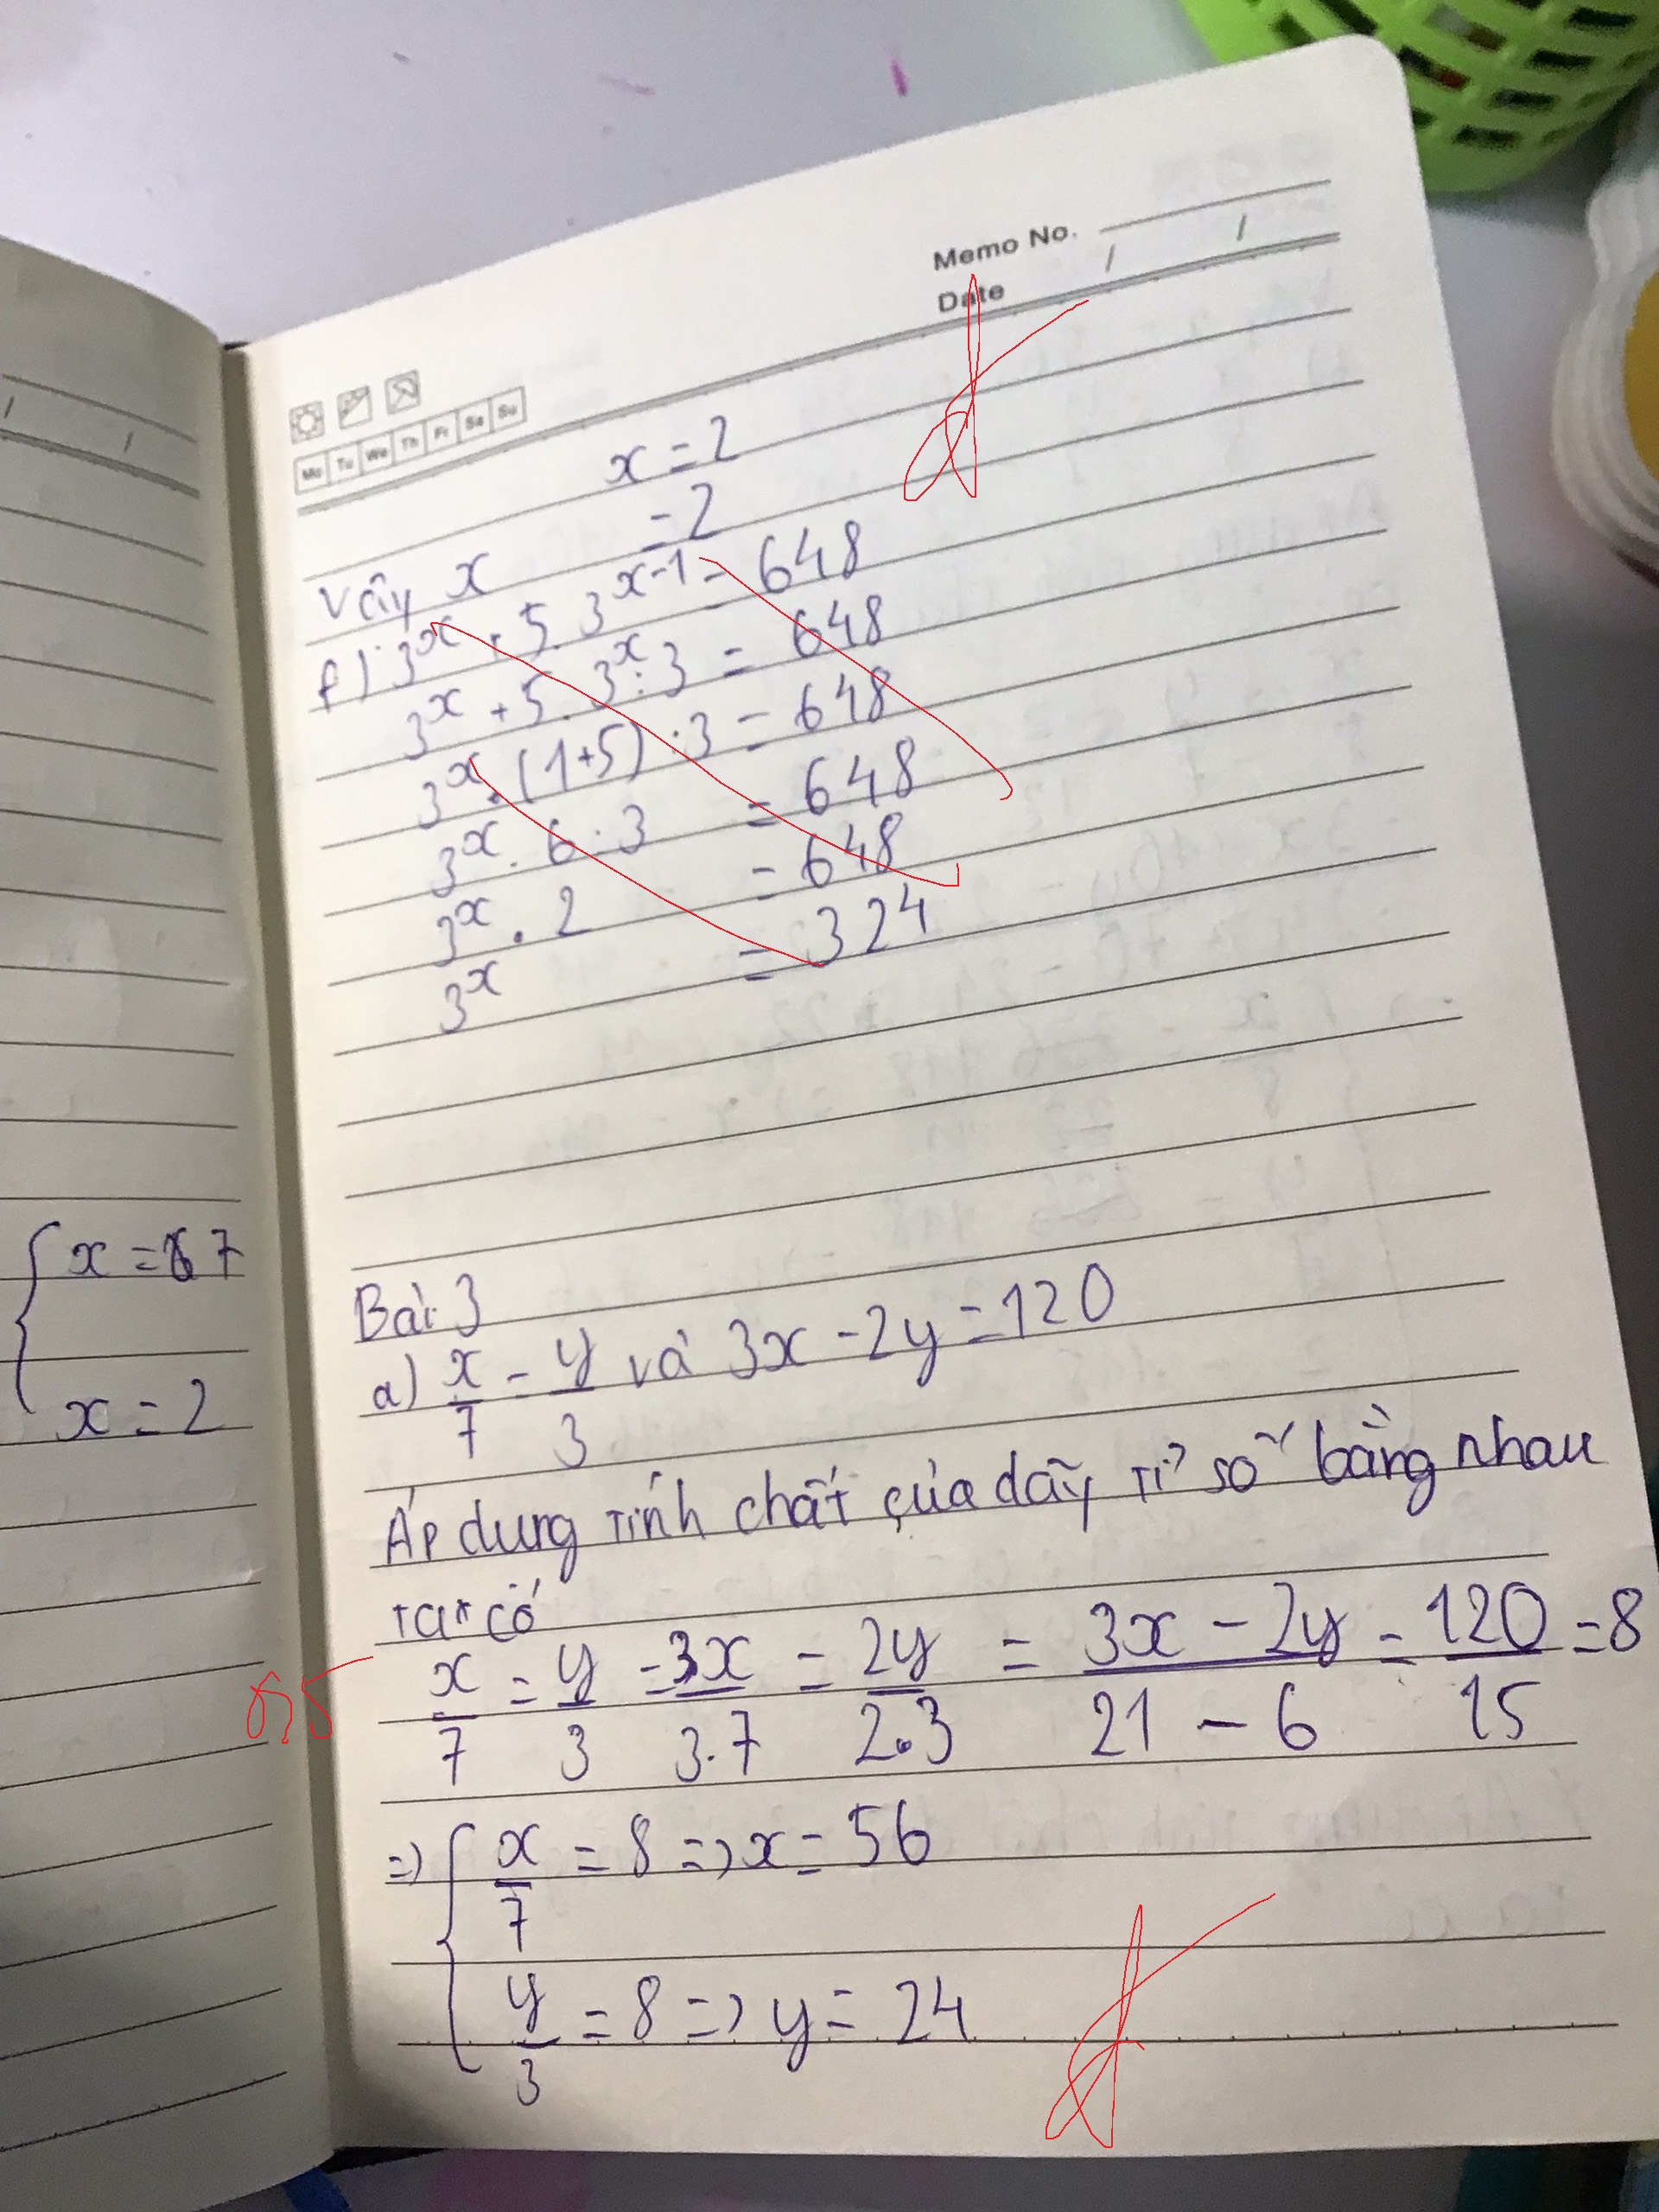 Memo No.
Date / /
Mo Tu We Th Fr Sa Su
x = 2
Vậy x = 2
f) 3^x + 5. 3^x-1 = 648
3^x + 5. 3^x : 3 = 648
3^x . (1+5) : 3 = 648
3^x . 6 : 3 = 648
3^x . 2 = 648
3^x = 324
{ x = 67
x = 2
Bài 3
a) x/7 = y/3 và 3x - 2y = 120
Áp dụng tính chất của dãy tỉ số bằng nhau
ta có
0,5
x/7 = y/3 = 3x/3.7 = 2y/2.3 = 3x - 2y/21 - 6 = 120/15 = 8
=> { x/7 = 8 => x = 56
y/3 = 8 => y = 24